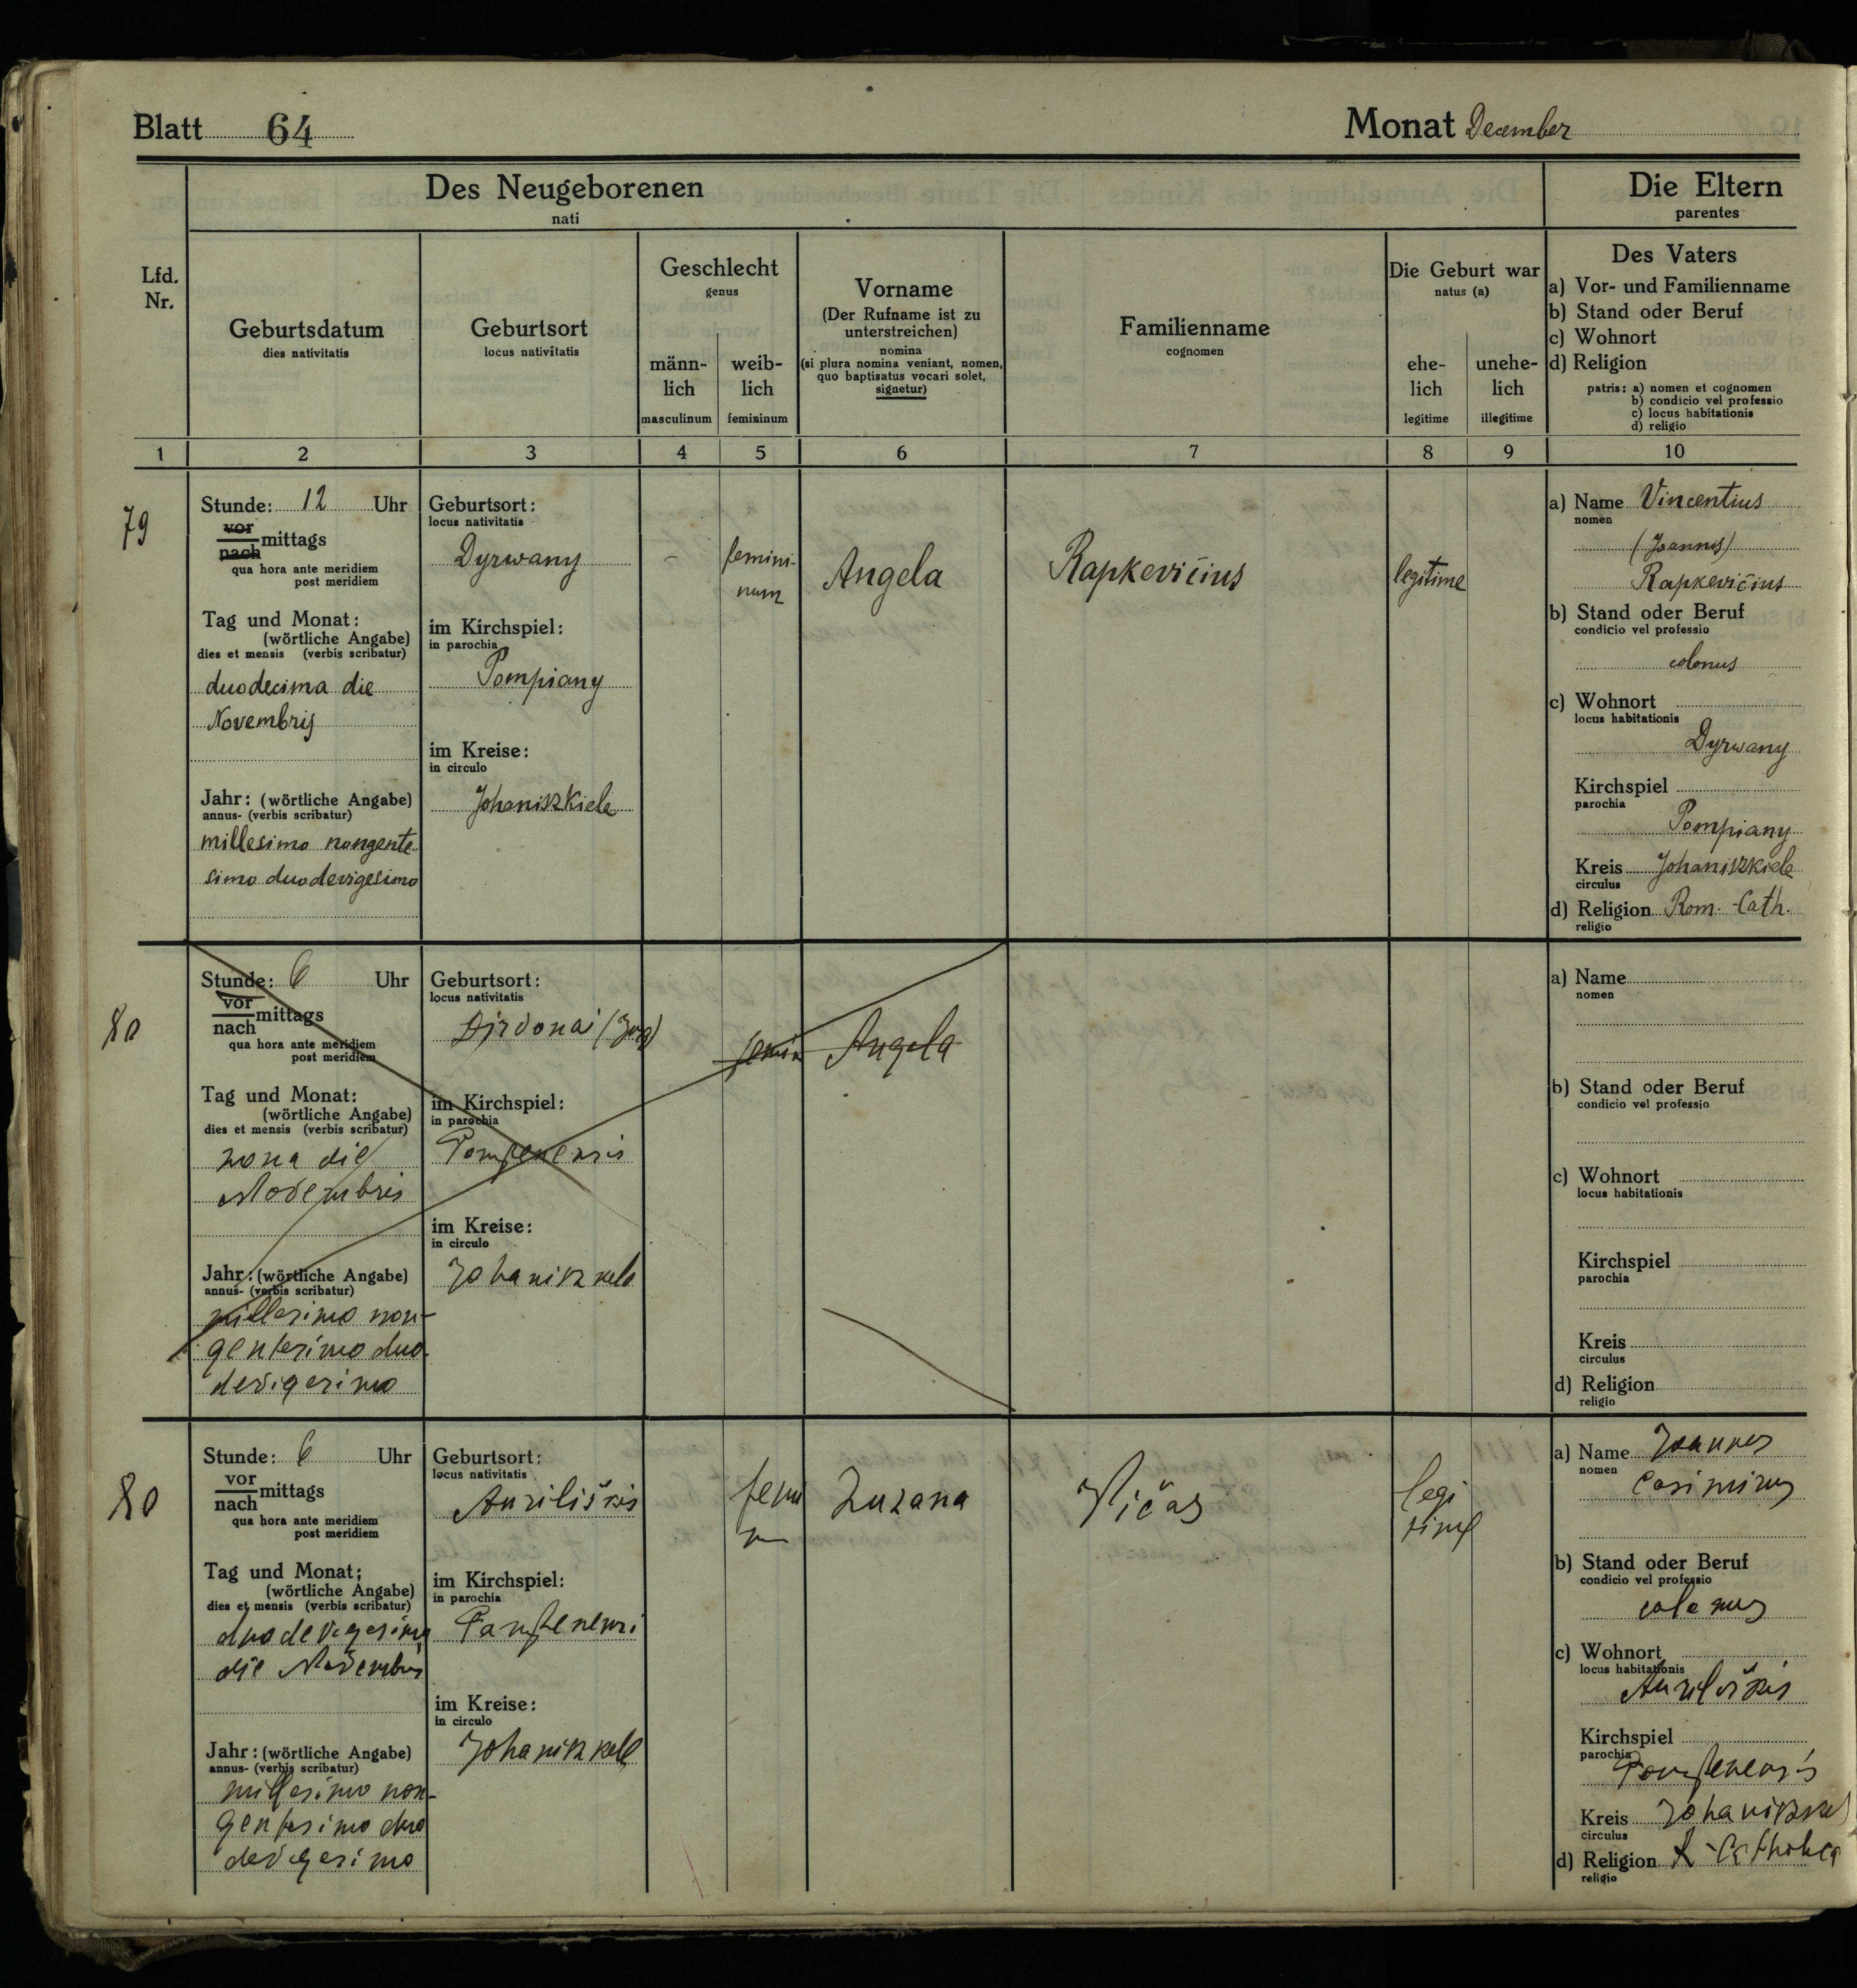 Blatt 64
Monat December
Des Neugeborenen
nati
Die Eltern
parentes
Lfd.
Nr.
Geburtsdatum
dies nativitatis
Geburtsort
locus nativitatis
Geschlecht
genus
männ-
lich
masculinum
weib-
lich
femininum
Vorname
(Der Rufname ist zu
unterstreichen)
nomina
(si plura nomina veniant, nomen,
quo baptisatus vocari solet,
signetur)
Familienname
cognomen
Die Geburt war
natus (a)
ehe-
lich
legitime
unehe-
lich
illegitime
Des Vaters
a) Vor- und Familienname
b) Stand oder Beruf
c) Wohnort
d) Religion
patris: a) nomen et cognomen
b) condicio vel professio
c) locus habitationis
d) religio
1 2 3 4 5 6 7 8 9 10
79
Stunde: 12 Uhr
vor
nach mittags
qua hora ante meridiem
post meridiem
Tag und Monat:
(wörtliche Angabe)
dies et mensis (verbis scribatur)
duodecima die
Novembris
Jahr: (wörtliche Angabe)
annus- (verbis scribatur)
millesimo nongente
simo duodevigesimo
Geburtsort:
locus nativitatis
Dyrwany
im Kirchspiel:
in parochia
Pompiany
im Kreise:
in circulo
Johaniszkiele
-
femini-
num
Angela
Rapkevičius
legitime
a) Name Vincentius
nomen
(Joannis)
Rapkevičius
b) Stand oder Beruf
condicio vel professio
colonus
c) Wohnort
locus habitationis
Dyrwany
Kirchspiel
parochia
Pompiany
Kreis Johaniszkiele
circulus
d) Religion Rom.-Cath.
religio
80
Stunde: 6 Uhr
vor
nach mittags
qua hora ante meridiem
post meridiem
Tag und Monat:
(wörtliche Angabe)
dies et mensis (verbis scribatur)
nona die
Novembris
Jahr: (wörtliche Angabe)
annus- (verbis scribatur)
millesimo non-
gentesimo duo-
devigesimo
Geburtsort:
locus nativitatis
im Kirchspiel:
in parochia
Pompenensis
im Kreise:
in circulo
Johaniszkele
femin
Angela
a) Name
nomen
b) Stand oder Beruf
condicio vel professio
c) Wohnort
locus habitationis
Kirchspiel
parochia
Kreis
circulus
d) Religion
religio
80
Stunde: 6 Uhr
vor
nach mittags
qua hora ante meridiem
post meridiem
Tag und Monat:
(wörtliche Angabe)
dies et mensis (verbis scribatur)
duodevigesima
die Novembris
Jahr: (wörtliche Angabe)
annus- (verbis scribatur)
millesimo non-
gentesimo duo
devigesimo
Geburtsort:
locus nativitatis
Auriliškis
im Kirchspiel:
in parochia
im Kreise:
in circulo
Johaniszkele
Zuzana
Vičas
legi
time
a) Name Joannes
nomen
Casimirus
b) Stand oder Beruf
condicio vel professio
colonus
c) Wohnort
locus habitationis
Auriliškis
Kirchspiel
parochia
Pompenensis
Kreis Johaniszkel
circulus
d) Religion R-Catholica
religio